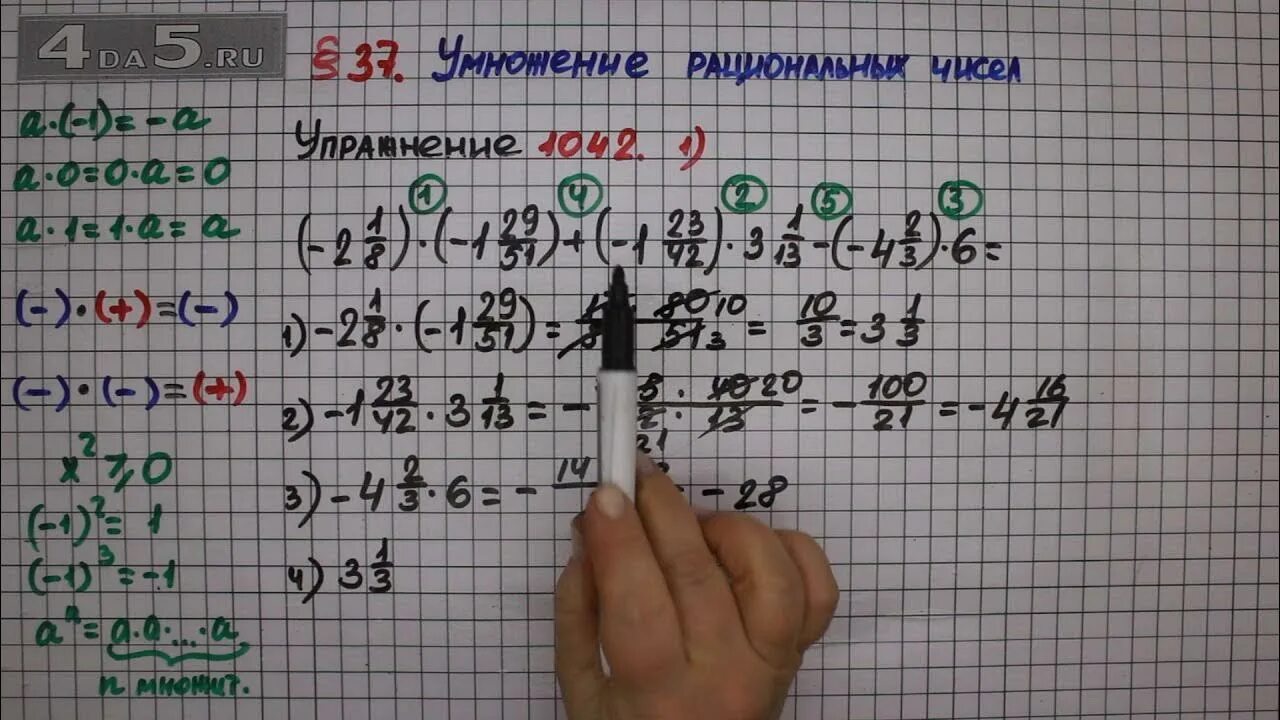 4DA5.RU
§ 37. Умножение рациональных чисел
Упражнение 1042. 1)
a·(-1)=-a
a·0=0·a=0
a·1=1·a=a
(-)·(+)=(-)
(-)·(-)=(+)
x²⩾0
(-1)²=1
(-1)³=-1
aⁿ=a·a·...·a
n множит.
① ④ ② ⑤ ③
(-2 1/8)·(-1 29/51)+(-1 23/42)·3 1/13-(-4 2/3)·6=
1) -2 1/8·(-1 29/51)= 80 10 / 51 3 = 10/3=3 1/3
2) -1 23/42·3 1/13=- · 40 20 / · 13 21 =-100/21=-4 16/21
3) -4 2/3·6=- 14 =-28
4) 3 1/3